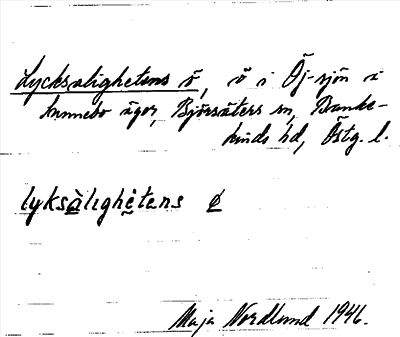 Lycksalighetens ö, ö i Öj-sjön i
Hunnebo ägor, Björsäters sn, Banke-
kinds hd, Östg. l.
lyksàlighètens ø
Maja Nordlund 1946.